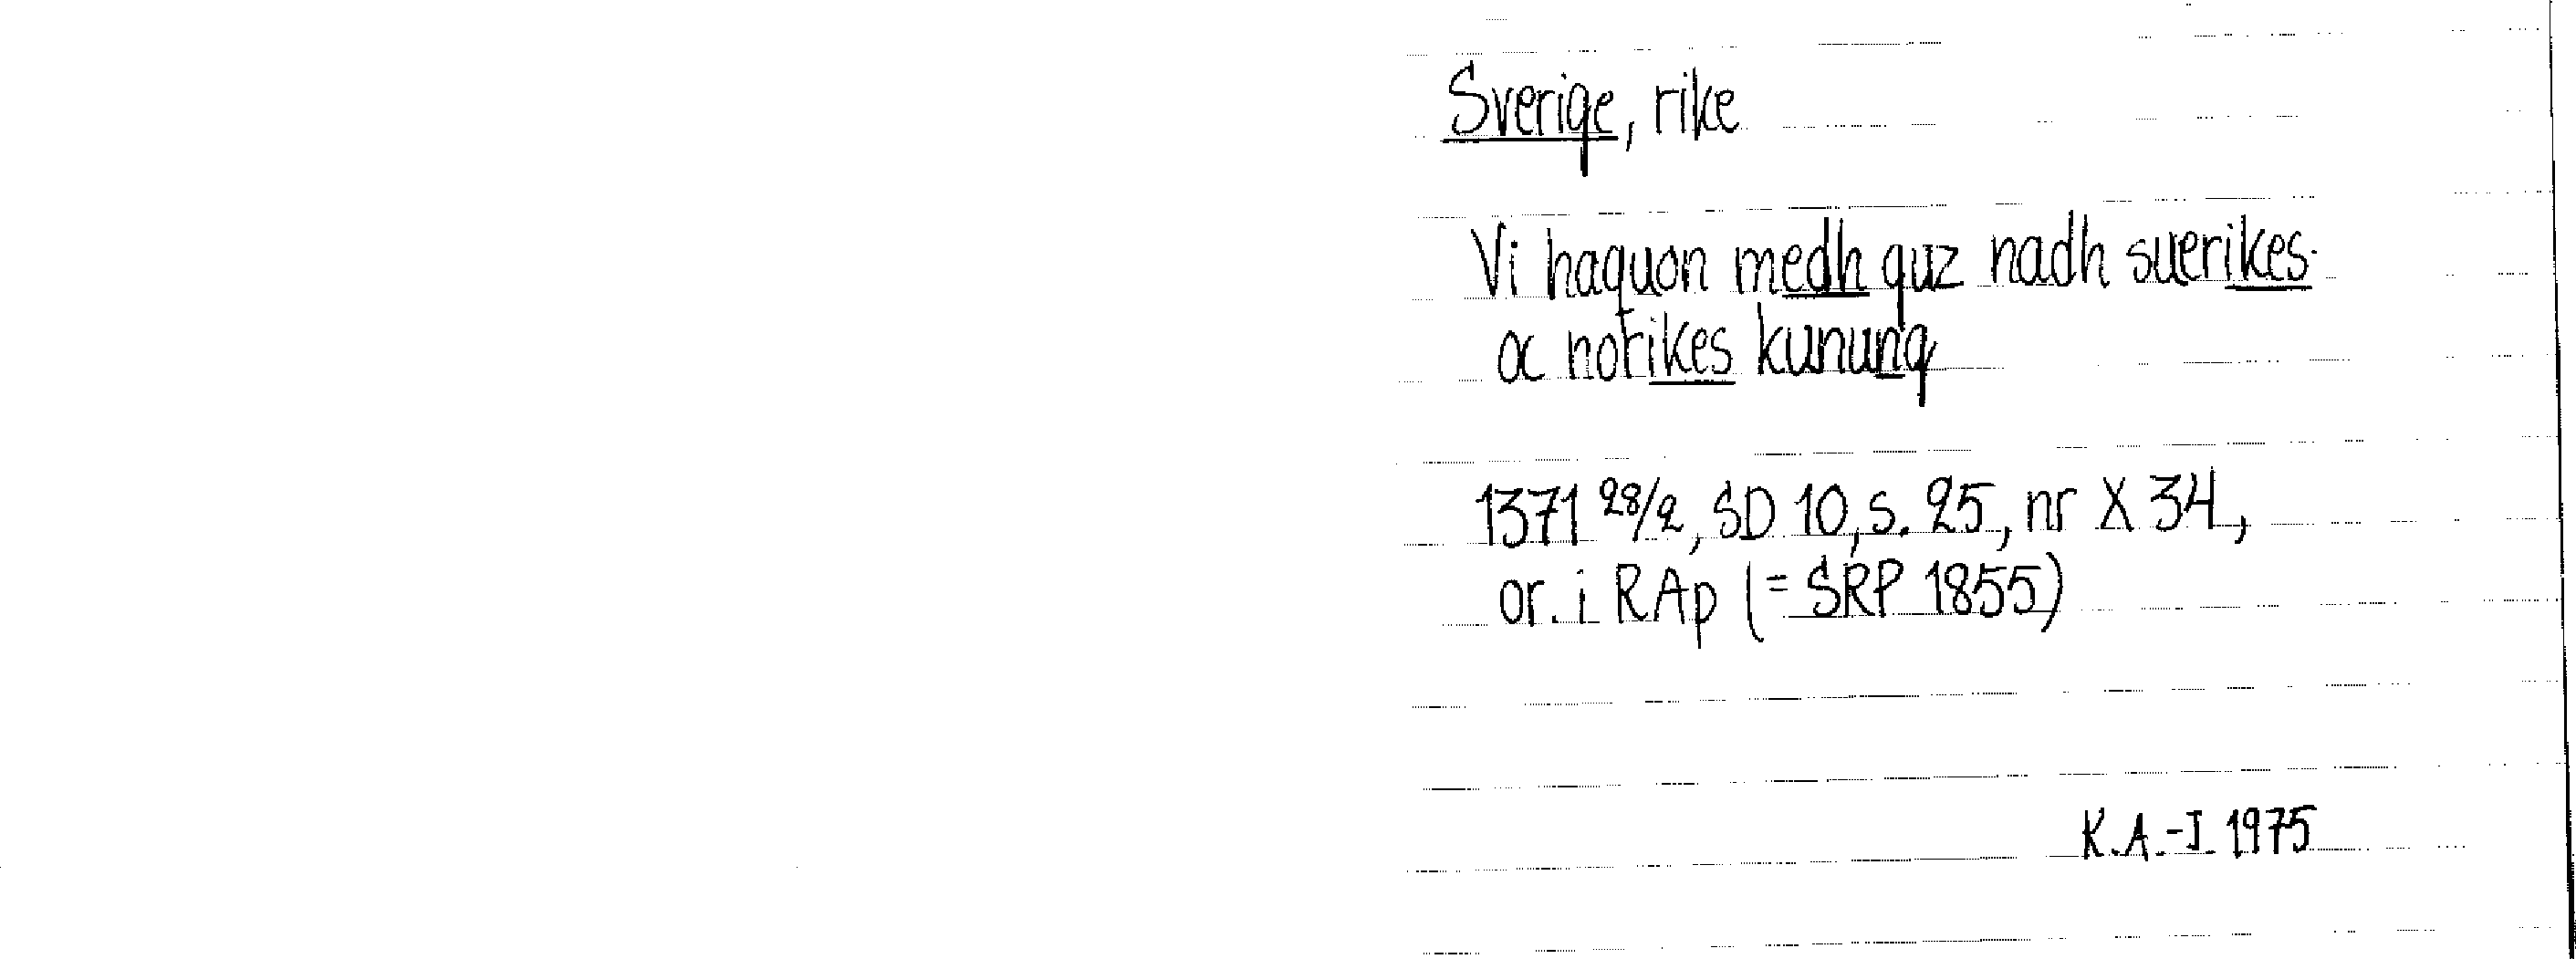 Sverige, rike
Vi haquon medh guz nadh suerikes
oc norikes kunung
1371 28/2, SD 10, s. 25, nr X 34,
or. i RAp (= SRP 1855)
K.A.-I. 1975